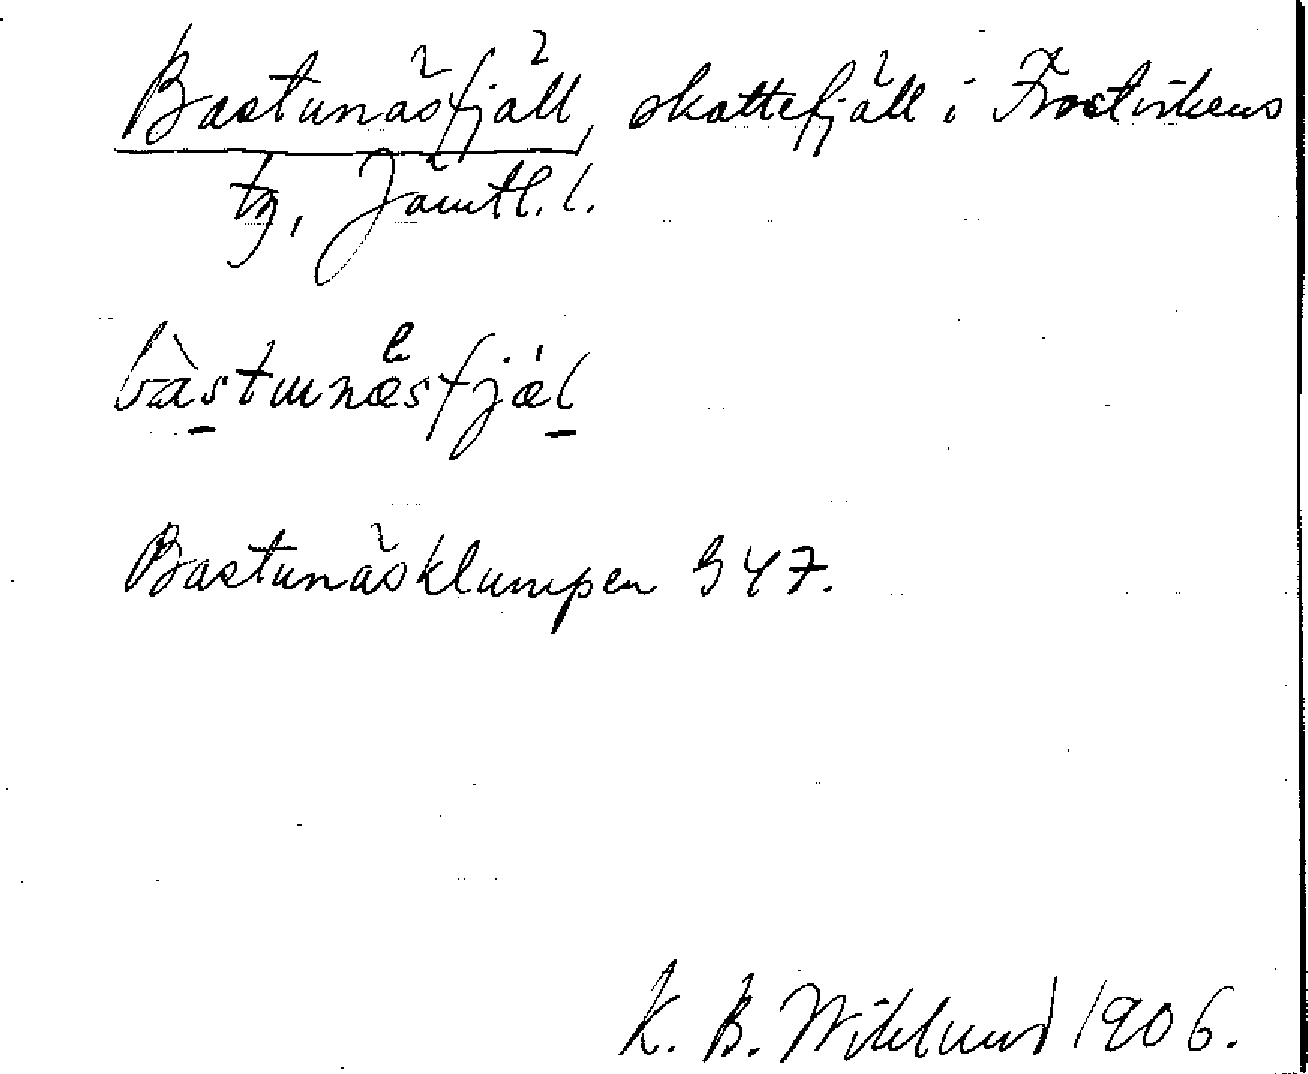 Bastunäsfjäll, skattefjäll i Frostvikens
tg, Jämtl. l.
bàstunæsfjæ̀l
Bastunäsklumpen 947.
K. B. Wiklund 1906.